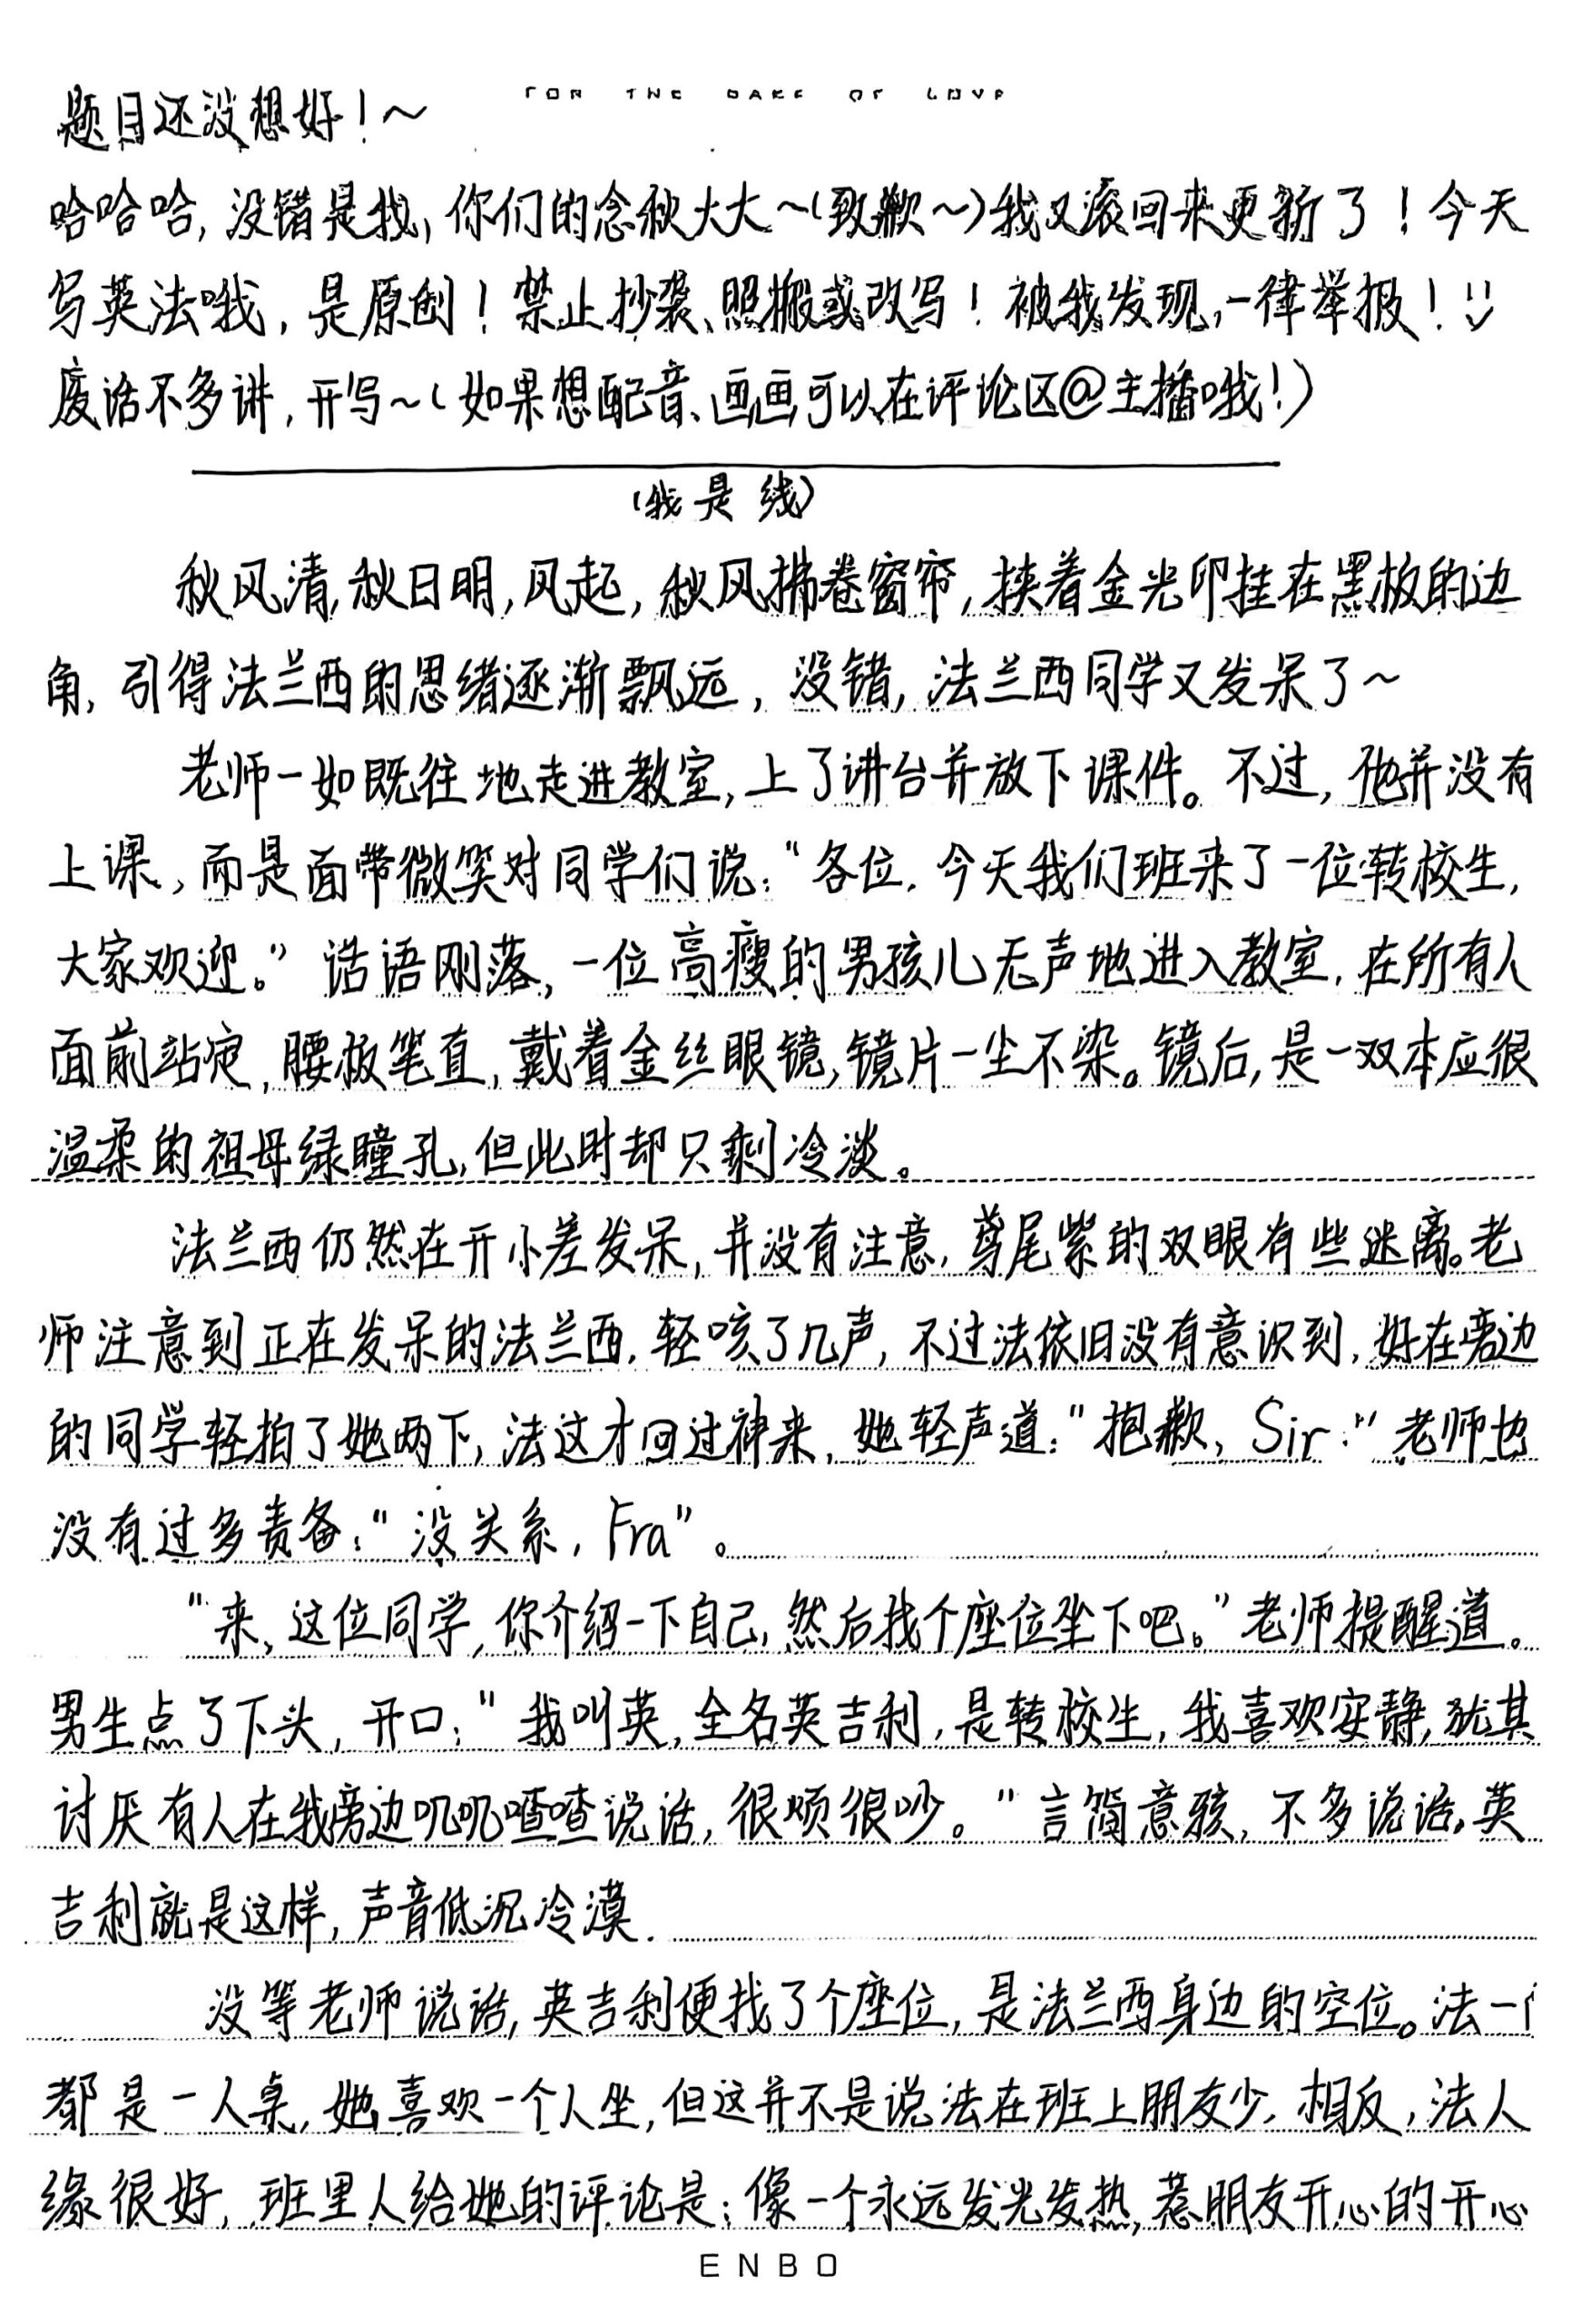 FOR THE SAKE OF LOVE
题目还没想好!~
哈哈哈,没错是我,你们的念秋大大~(致歉~)我又滚回来更新了!今天
写英法哦,是原创!禁止抄袭、照搬或改写!被我发现,一律举报!
废话不多讲,开写~(如果想配音、画画可以在评论区@主播哦!)
(我是线)
秋风清,秋日明,风起,秋风拂卷窗帘,挟着金光印挂在黑板的边
角,引得法兰西的思绪逐渐飘远,没错,法兰西同学又发呆了~
老师一如既往地走进教室,上了讲台并放下课件。不过,他并没有
上课,而是面带微笑对同学们说:“各位,今天我们班来了一位转校生,
大家欢迎。”话语刚落,一位高瘦的男孩儿无声地进入教室,在所有人
面前站定,腰板笔直,戴着金丝眼镜,镜片一尘不染。镜后,是一双本应很
温柔的祖母绿瞳孔,但此时却只剩冷淡。
法兰西仍然在开小差发呆,并没有注意,鸢尾紫的双眼有些迷离。老
师注意到正在发呆的法兰西,轻咳了几声,不过法依旧没有意识到,好在旁边
的同学轻拍了她两下,法这才回过神来,她轻声道:“抱歉,Sir.”老师也
没有过多责备:“没关系,Fra”。
“来,这位同学,你介绍一下自己,然后找个座位坐下吧。”老师提醒道。
男生点了下头,开口:“我叫英,全名英吉利,是转校生,我喜欢安静,犹其
讨厌有人在我旁边叽叽喳喳说话,很烦很吵。”言简意骇,不多说话,英
吉利就是这样,声音低沉冷漠.
没等老师说话,英吉利便找了个座位,是法兰西身边的空位。法一
都是一人桌,她喜欢一个人坐,但这并不是说法在班上朋友少,相反,法人
缘很好,班里人给她的评论是:像一个永远发光发热,惹朋友开心的开心
ENBO